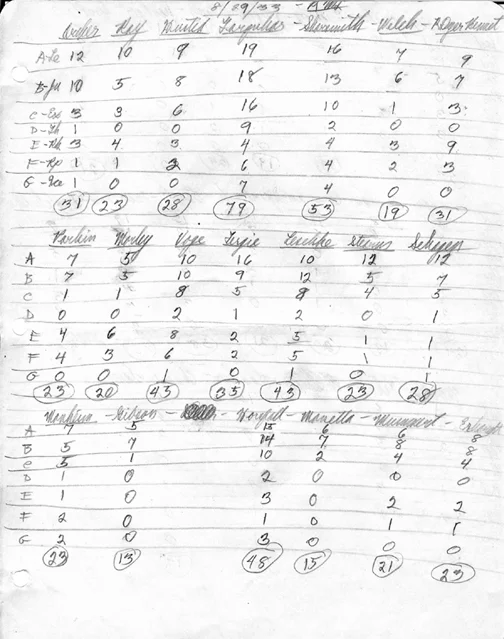 8/29/33 -
Archer - Ray - Husted - Farquhar - Shoemith - Welch - Roger
A-Le 12 10 9 19 16 7 9
B-Ju 10 5 8 18 13 6 7
C-Exe 3 3 6 16 10 1 3
D-Th 1 0 0 9 2 0 0
E-Rh 3 4 3 4 4 3 9
F-Rp 1 1 2 6 4 2 3
G- 1 0 0 7 4 0 0
31 23 28 79 53 19 31
Parkin Morley Pope Leschke Stearns
A 7 5 10 16 10 12 12
B 7 5 10 9 12 5 7
C 1 1 8 5 8 4 5
D 0 0 2 1 2 0 1
E 4 6 8 2 5 1 1
F 4 3 6 2 5 1 1
G 0 0 1 0 1 0 1
23 20 45 35 43 23 28
- Gibson - - - Manetta - -
A 7 5 15 6 6 8
B 5 7 14 7 8 8
C 5 1 10 2 4 4
D 1 0 2 0 0 0
E 1 0 3 0 2 2
F 2 0 1 0 1 1
G 2 0 3 0 0 0
23 13 48 15 21 23